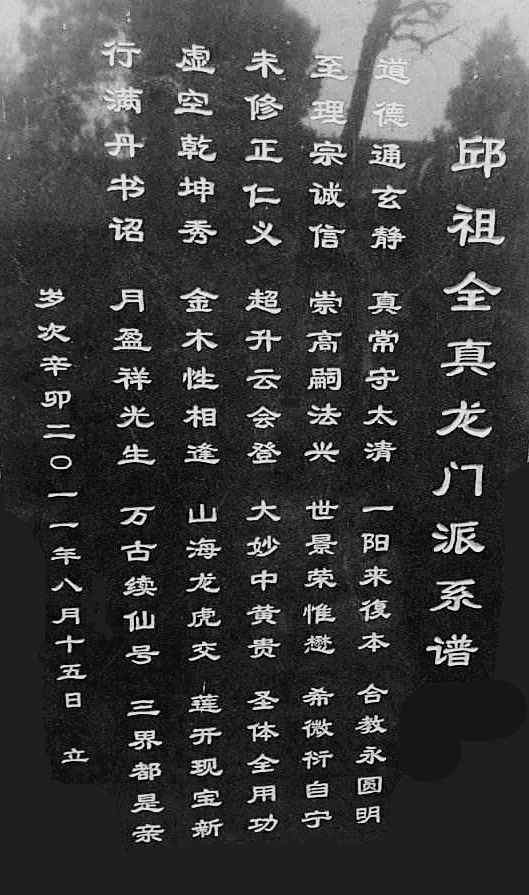 邱祖全真龙门派系谱
道德通玄静 真常守太清 一阳来復本 合教永圆明
至理宗诚信 崇高嗣法兴 世景荣惟懋 希微衍自宁
未修正仁义 超升云会登 大妙中黄贵 圣体全用功
虚空乾坤秀 金木性相逢 山海龙虎交 莲开现宝新
行满丹书诏 月盈祥光生 万古续仙号 三界都是亲
岁次辛卯二〇一一年八月十五日 立